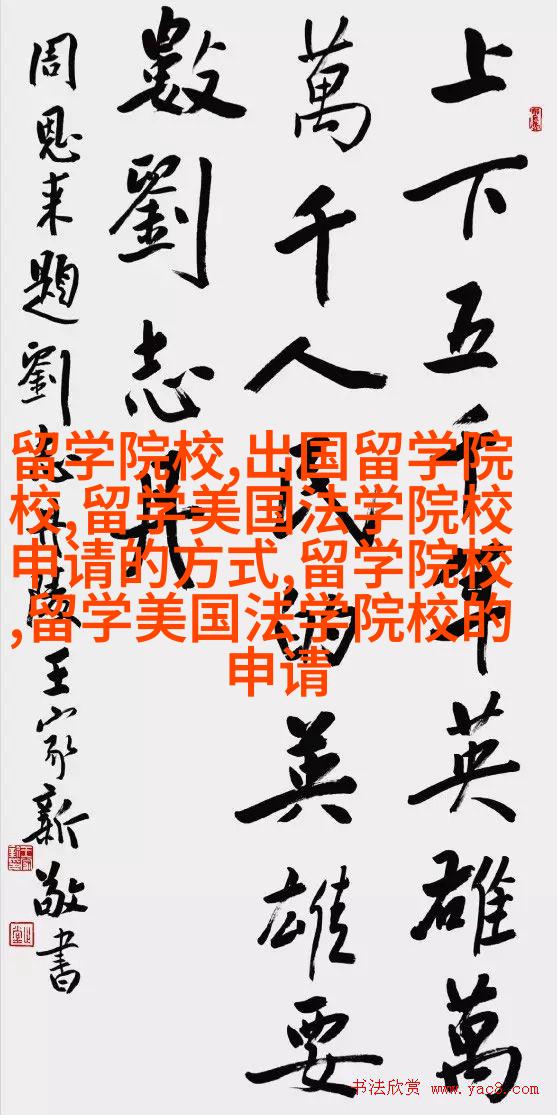 上下五千年英雄萬
萬千人民的英雄要
數劉志丹
周恩来題劉志丹陵王家新敬書
留学院校,出国留学院
校,留学美国法学院校
申请的方式,留学院校
,留学美国法学院校的
申请
书法欣赏 www.yac8.com